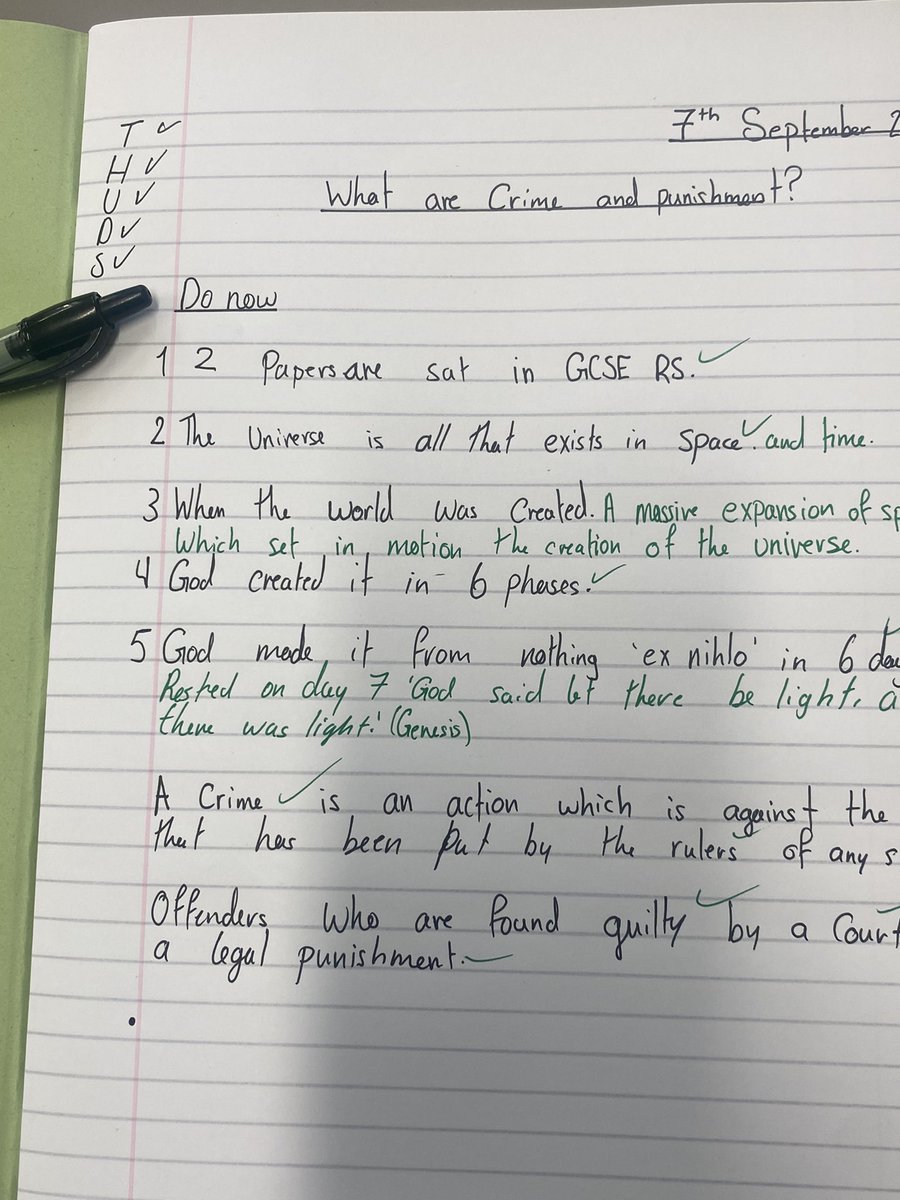 T ✓
H ✓
U ✓
D ✓
S ✓
7th September
What are Crime and punishment?
Do now
1 2 Papers are sat in GCSE RS. ✓
2 The Universe is all that exists in space ✓. and time.
3 When the world was created. A massive expansion of sp
Which set in motion the creation of the universe.
4 God created it in 6 phases. ✓
5 God made it from nothing 'ex nihlo' in 6 da
Rested on day 7 'God said let there be light, a
there was light.' (Genesis)
A Crime ✓ is an action which is against the
that has been put by the rulers of any s
Offenders who are found guilty ✓ by a Court
a legal punishment. ✓